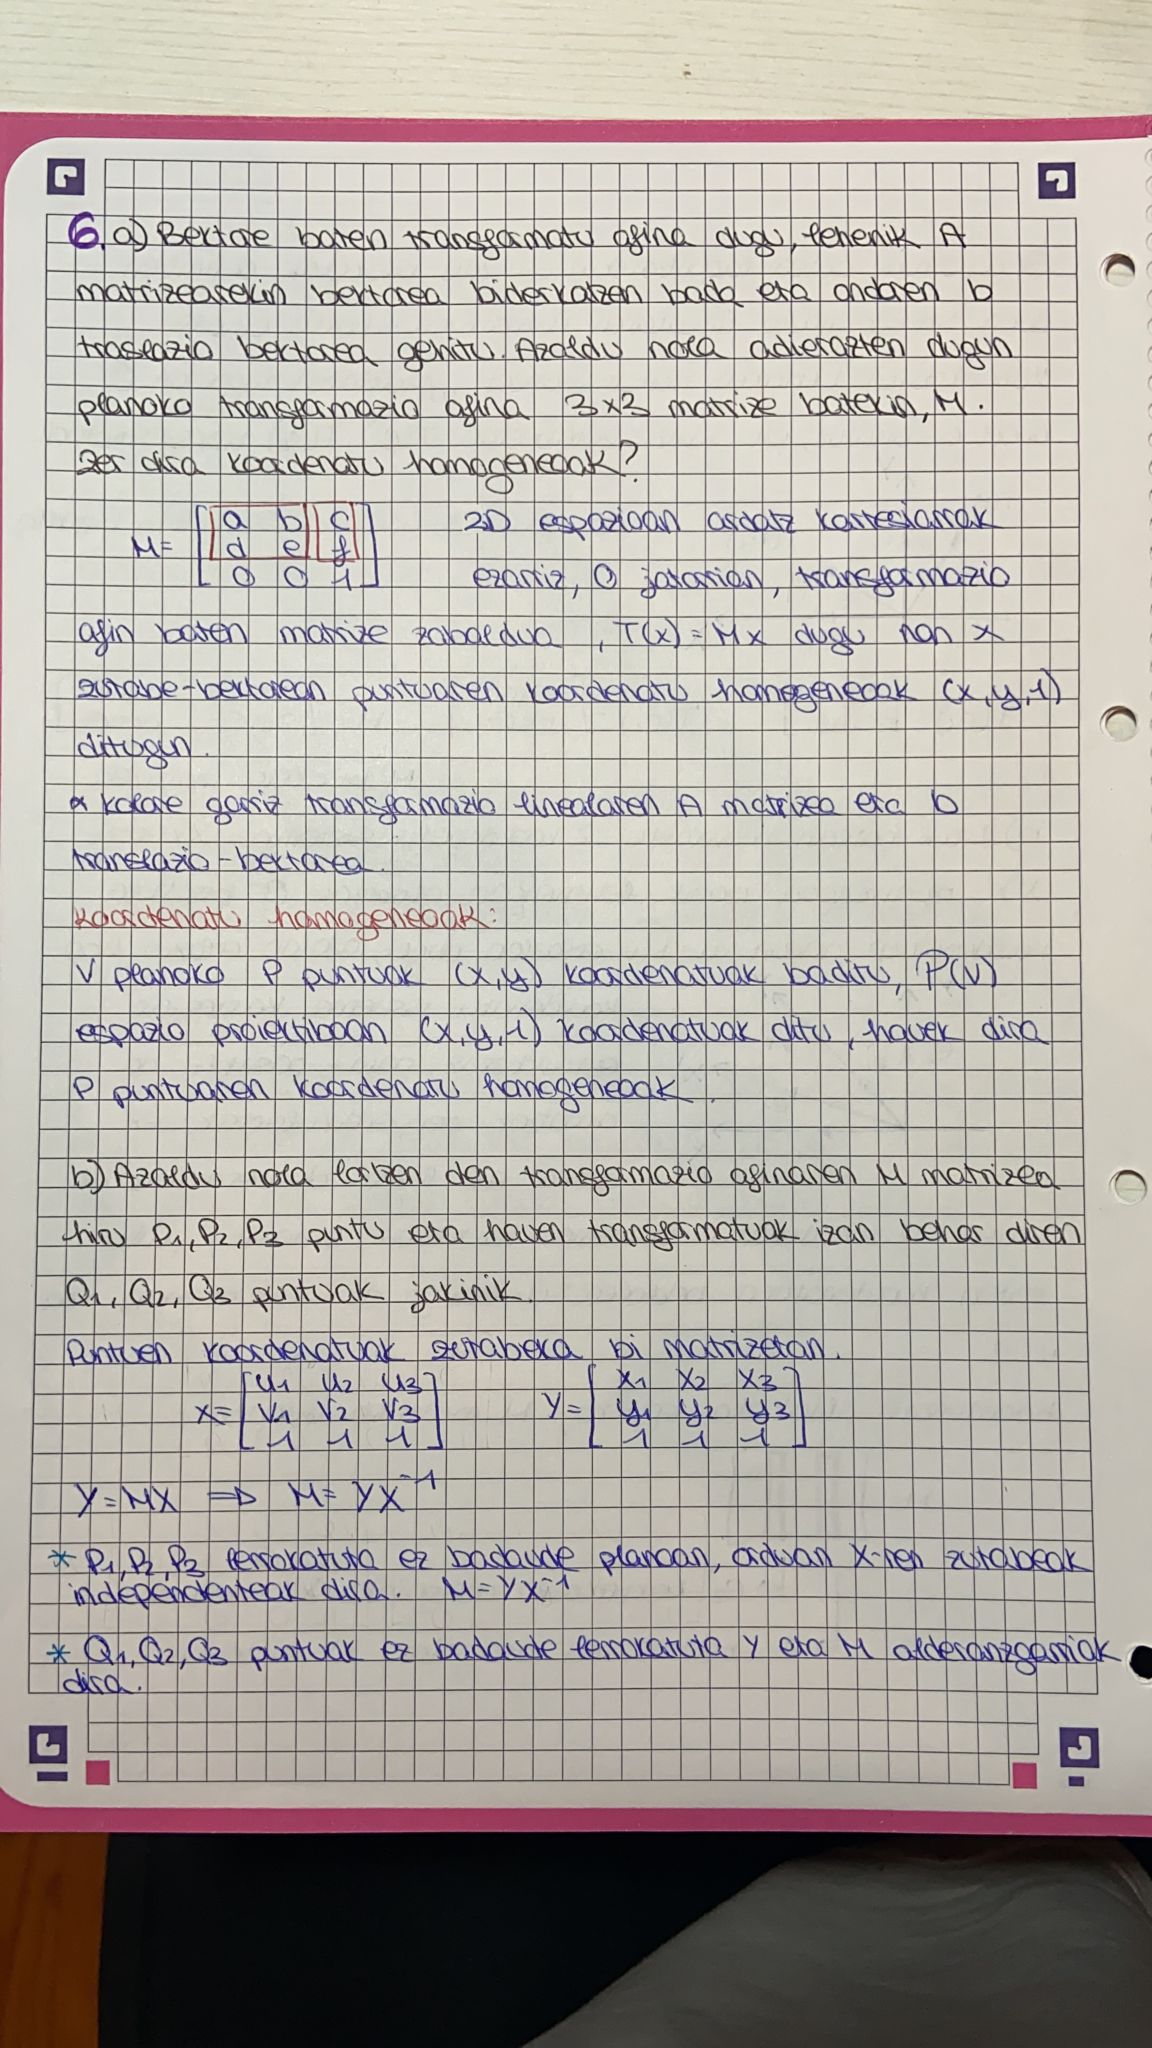 6. a) Bektore baten transformatu afina dugu, lehenik A
matrizearekin bektorea biderkatzen bada eta ondoren b
traslazio bektorea gehitu. Azaldu nola adierazten dugun
planoko transformazio afina 3x3 matrize batekin, M.
Zer dira koordenatu homogeneoak?
M = [ a b c
d e f
0 0 1 ]
2D espazioan ardatz kartesiarrak
ezarriz, O jatorrian, transformazio
afin baten matrize zabaldua, T(x) = Mx dugu non x
zutabe-bektorean puntuaren koordenatu homogeneoak (x,y,1)
ditugun.
* kolore gorriz transformazio linealaren A matrizea eta b
translazio-bektorea.
Koordenatu homogeneoak:
V planoko P puntuak (x,y) koordenatuak baditu, P(V)
espazio proiektiboan (x,y,1) koordenatuak ditu, hauek dira
P puntuaren koordenatu homogeneoak.
b) Azaldu nola lortzen den transformazio afinaren M matrizea
hiru P1, P2, P3 puntu eta hauen transformatuak izan behar diren
Q1, Q2, Q3 puntuak jakinik.
Puntuen koordenatuak zutabeka bi matrizetan.
X = [ u1 u2 u3
v1 v2 v3
1 1 1 ]
Y = [ x1 x2 x3
y1 y2 y3
1 1 1 ]
Y = MX ⇒ M = YX⁻¹
* P1, P2, P3 lerrokatuta ez badaude planoan, orduan X-ren zutabeak
independenteak dira. M = YX⁻¹
* Q1, Q2, Q3 puntuak ez badaude lerrokatuta Y eta M alderanzgarriak
dira.